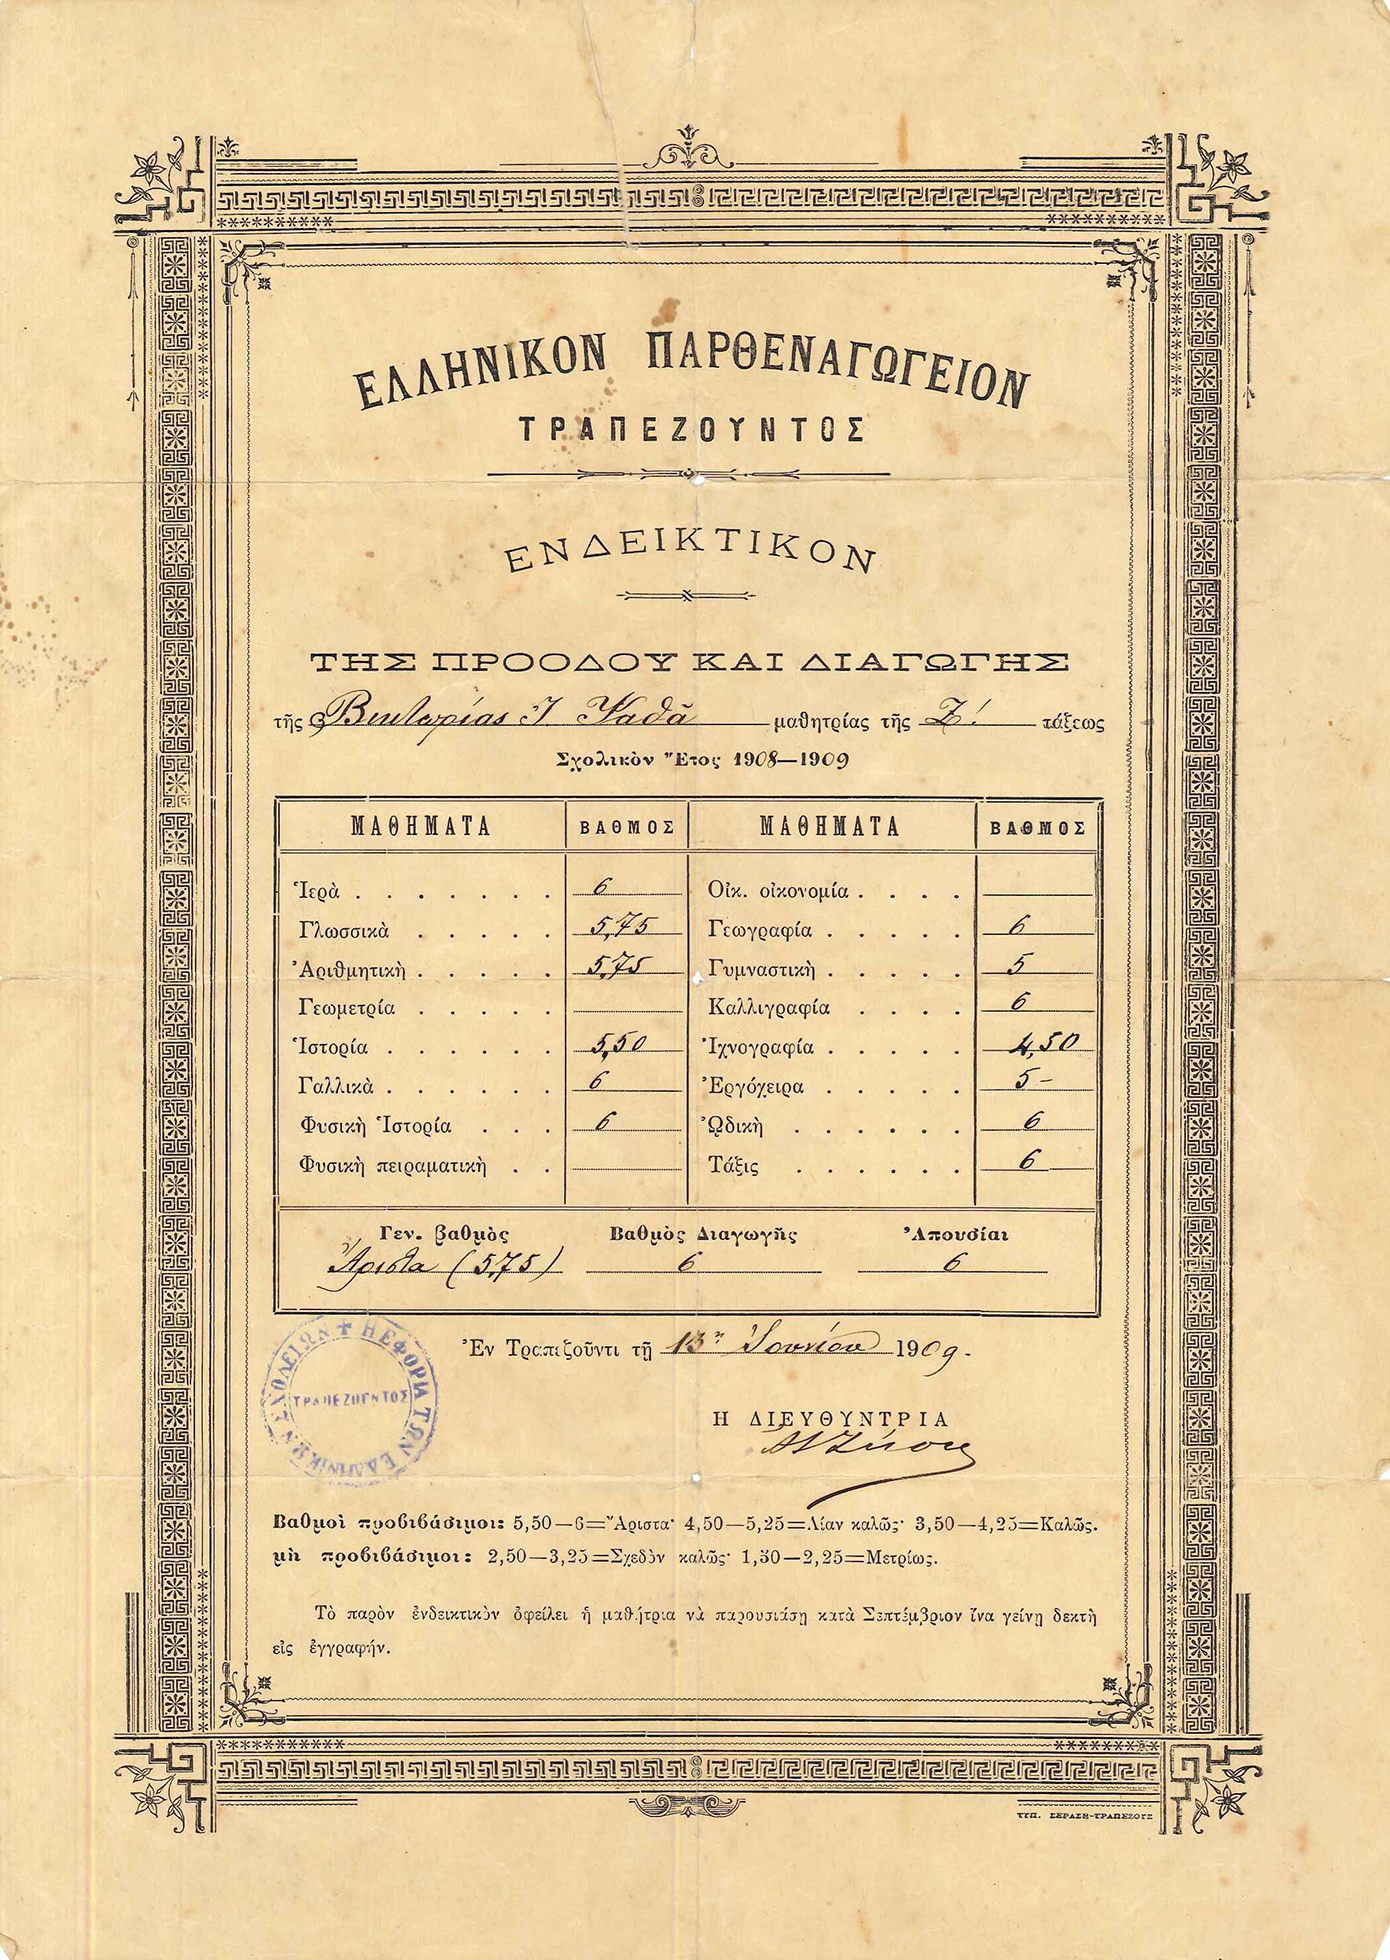 ΕΛΛΗΝΙΚΟΝ ΠΑΡΘΕΝΑΓΩΓΕΙΟΝ
ΤΡΑΠΕΖΟΥΝΤΟΣ
ΕΝΔΕΙΚΤΙΚΟΝ
ΤΗΣ ΠΡΟΟΔΟΥ ΚΑΙ ΔΙΑΓΩΓΗΣ
τῆς Βικτωρίας Ἰ. Ψαθᾶ μαθητρίας τῆς Ζ! τάξεως
Σχολικὸν Ἔτος 1908—1909
ΜΑΘΗΜΑΤΑ ΒΑΘΜΟΣ ΜΑΘΗΜΑΤΑ ΒΑΘΜΟΣ
Ἱερὰ . . . . . . . 6 Οἰκ. οἰκονομία . . . .
Γλωσσικὰ . . . . . 5,75 Γεωγραφία . . . . . 6
Ἀριθμητικὴ . . . . . 5,75 Γυμναστικὴ . . . . . 5
Γεωμετρία . . . . . Καλλιγραφία . . . . 6
Ἱστορία . . . . . . 5,50 Ἰχνογραφία . . . . . 4,50
Γαλλικὰ . . . . . . 6 Ἐργόχειρα . . . . . 5-
Φυσικὴ Ἱστορία . . . 6 ᾨδικὴ . . . . . . 6
Φυσικὴ πειραματικὴ . . Τάξις . . . . . . 6
Γεν. βαθμὸς Βαθμὸς Διαγωγῆς Ἀπουσίαι
Ἄριστα (5,75) 6 6
Ἐν Τραπεζοῦντι τῇ 13ῃ Ἰουνίου 1909.
Η ΕΦΟΡΙΑ ΤΩΝ ΕΛΛΗΝΙΚΩΝ ΣΧΟΛΕΙΩΝ
ΤΡΑΠΕΖΟΥΝΤΟΣ
Η ΔΙΕΥΘΥΝΤΡΙΑ
Βαθμοὶ προβιβάσιμοι: 5,50—6=Ἄριστα· 4,50—5,25=Λίαν καλῶς· 3,50—4,25=Καλῶς.
μὴ προβιβάσιμοι: 2,50—3,25=Σχεδὸν καλῶς· 1,50—2,25=Μετρίως.
Τὸ παρὸν ἐνδεικτικὸν ὀφείλει ἡ μαθήτρια νὰ παρουσιάσῃ κατὰ Σεπτέμβριον ἵνα γείνῃ δεκτὴ
εἰς ἐγγραφήν.
ΤΥΠ. ΣΕΡΑΣΗ-ΤΡΑΠΕΖΟΥΣ